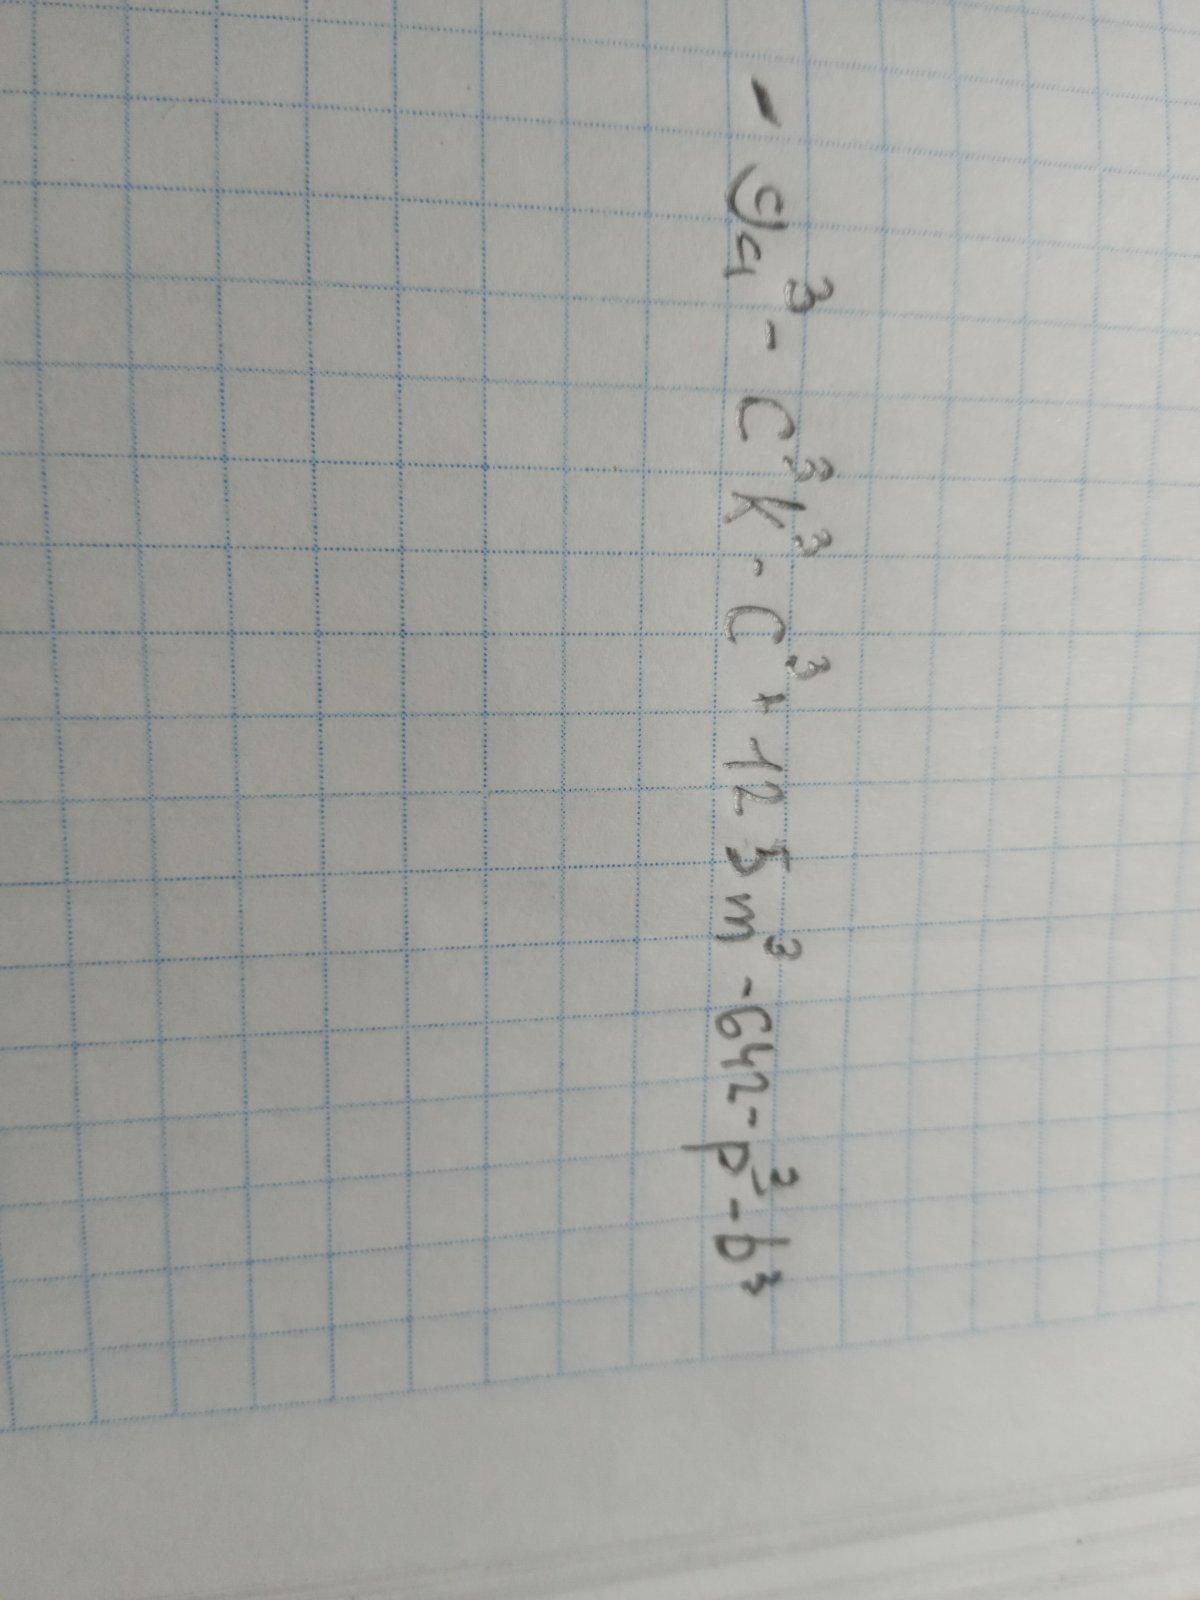 - 9a³ - c³k³ - c³ + 125m³ - 642 - p³ - b³